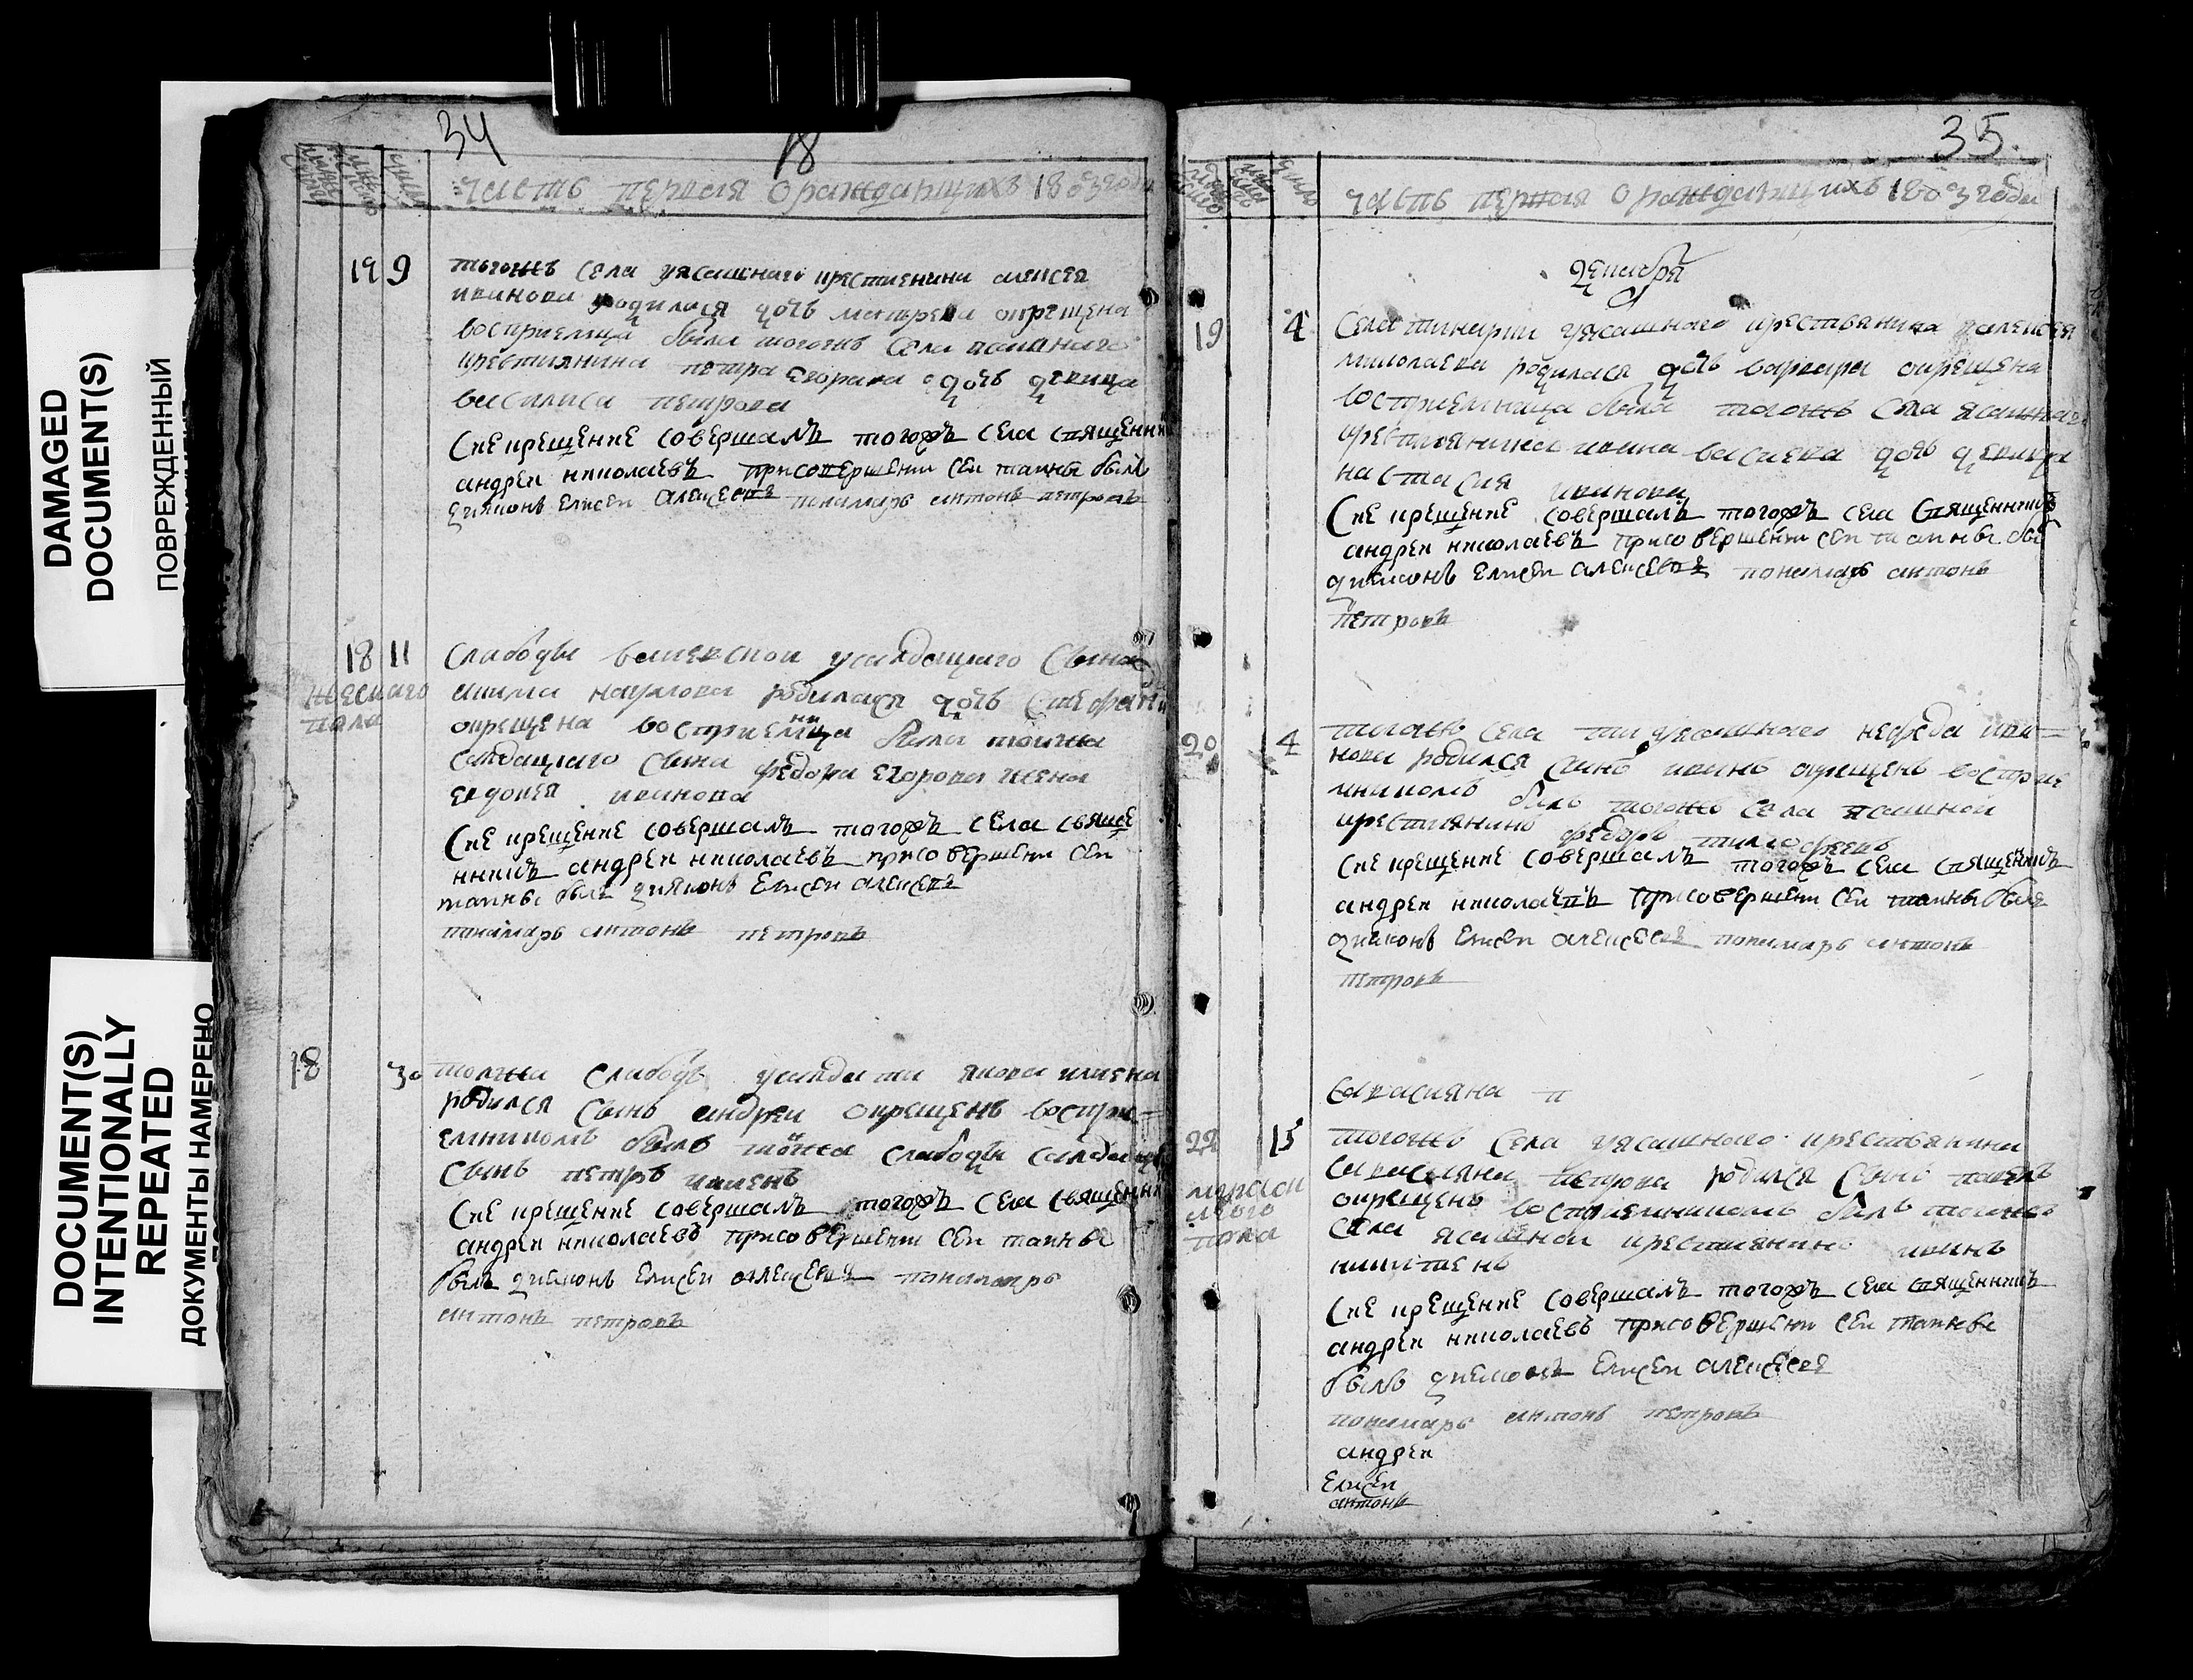 DAMAGED
DOCUMENT(S)
ПОВРЕЖДЕННЫЙ
DOCUMENT(S)
INTENTIONALLY
REPEATED
ДОКУМЕНТЫ НАМЕРЕНО
34
18
часть первая о раждающихъ 1803 года
19 9
тогожъ села уясашнаго крестьенина алексея
иванова родилася дочь матрена окрещена
восприемница была тогожъ села
крестиянина петра егорова дочь девица
василиса петрова
Сие крещение совершалъ тогожъ села священни
андреи николаевъ присовершени сеи таины былъ
дияконъ Елисеи алексеевъ понамарь антонъ петровъ
18 11
слабоды усалдацкаго сына
женскаго
пола
акима наумова родилася дочь
окрещена восприемница была тоижа
салдацкаго сына федора егорова жена
евдокея иванова
Сие крещение совершалъ тогожъ села свяще
нникъ андреи николаевъ присовершени сеи
таины былъ дияконъ Елисеи алексеевъ
понамарь антонъ петровъ
18 30
тоижа слабоды усалдата якова
родился сынъ андреи окрещенъ воспри=
емникомъ былъ тоижа слабоды
сынъ петръ
Сие крещение совершалъ тогожъ села священни
андреи николаевъ присовершени сеи таины
былъ диаконъ Елисеи алексеевъ понамарь
антонъ петровъ
35.
часть первая о раждающихъ 1803 года
декабря
19 4
Села уясашнаго крестьянина алексея
николаева родилася дочь варвара окрещена
восприемница была тогожъ села ясашнаго
крестиянина ивана дочь девица
настасия иванова
Сие крещение совершалъ тогожъ села Священникъ
андреи николаевъ присовершени сеи таины
диаконъ Елисеи алексеевъ понамарь антонъ
петровъ
20 4
тогожъ села уясашнаго нефеда ива=
нова родился сынъ иванъ окрещенъ восприе
мникомъ былъ тогожъ села ясашнои
крестиянинъ федоръ
Сие крещение совершалъ тогожъ села священникъ
андреи николаевъ присовершени сеи таины былъ
диаконъ Елисеи алексеевъ понамарь антонъ
петровъ
22 15
тогожъ села уясашнаго крестьянина
петрова родился сынъ павелъ
окрещенъ восприемникомъ былъ тогожъ
села ясашнои крестиянинъ иванъ
никитенъ
Сие крещение совершалъ тогожъ села священникъ
андреи николаевъ присовершени сеи таины
былъ диаконъ Елисеи алексеевъ
понамарь антонъ петровъ
андреи
Елисеи
антонъ